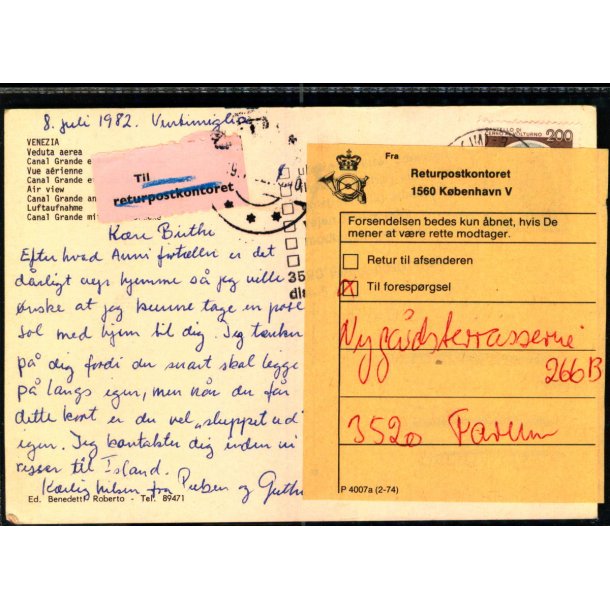 8. juli 1982. Ventimiglia
VENEZIA
Veduta aerea
Canal Grande e
Vue aérienne
Canal Grande e
Air view
Canal Grande an
Luftaufnahme
Canal Grande mi
Til
returpostkontoret
Kære Birthe
Efter hvad Anni fortæller er det
dårligt vejr hjemme så jeg ville
ønske at jeg kunne tage en pose
sol med hjem til dig. Jeg tænker
på dig fordi du snart skal ligge
på langs igen, men når du får
dette kort er du vel „sluppet ud"
igen. Jeg kontakter dig inden vi
rejser til Island.
Kærlig hilsen fra Preben og
Ed. Benedetti Roberto - Tel. 89471
35
200
Fra
Returpostkontoret
1560 København V
Forsendelsen bedes kun åbnet, hvis De
mener at være rette modtager.
Retur til afsenderen
Til forespørgsel
Nygårdsterrasserne
266B
3520 Farum
P 4007a (2-74)